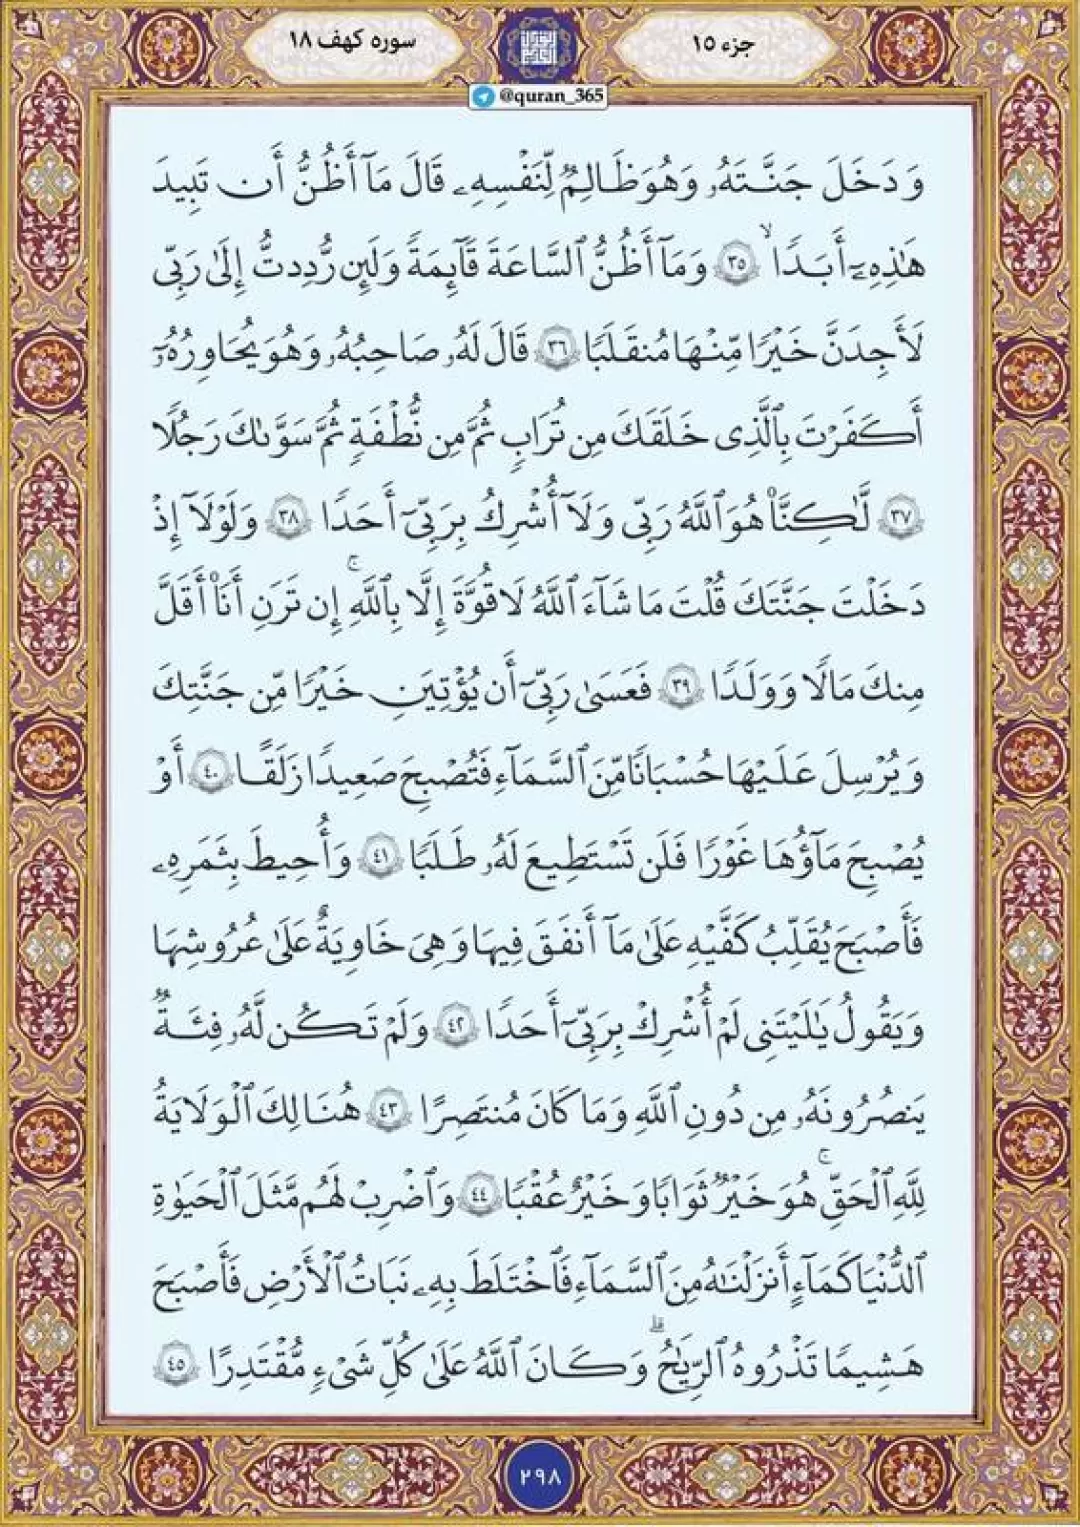 سوره کهف ۱۸
جزء ۱۵
@quran_365
وَدَخَلَ جَنَّتَهُۥ وَهُوَ ظَالِمٌ لِّنَفْسِهِۦ قَالَ مَآ أَظُنُّ أَن تَبِيدَ
هَٰذِهِۦٓ أَبَدًا ۙ ٣٥ وَمَآ أَظُنُّ ٱلسَّاعَةَ قَآئِمَةً وَلَئِن رُّدِدتُّ إِلَىٰ رَبِّى
لَأَجِدَنَّ خَيْرًا مِّنْهَا مُنقَلَبًا ٣٦ قَالَ لَهُۥ صَاحِبُهُۥ وَهُوَ يُحَاوِرُهُۥٓ
أَكَفَرْتَ بِٱلَّذِى خَلَقَكَ مِن تُرَابٍ ثُمَّ مِن نُّطْفَةٍ ثُمَّ سَوَّىٰكَ رَجُلًا
٣٧ لَّٰكِنَّا۠ هُوَ ٱللَّهُ رَبِّى وَلَآ أُشْرِكُ بِرَبِّىٓ أَحَدًا ٣٨ وَلَوْلَآ إِذْ
دَخَلْتَ جَنَّتَكَ قُلْتَ مَا شَآءَ ٱللَّهُ لَا قُوَّةَ إِلَّا بِٱللَّهِ ۚ إِن تَرَنِ أَنَا۠ أَقَلَّ
مِنكَ مَالًا وَوَلَدًا ٣٩ فَعَسَىٰ رَبِّىٓ أَن يُؤْتِيَنِ خَيْرًا مِّن جَنَّتِكَ
وَيُرْسِلَ عَلَيْهَا حُسْبَانًا مِّنَ ٱلسَّمَآءِ فَتُصْبِحَ صَعِيدًا زَلَقًا ٤٠ أَوْ
يُصْبِحَ مَآؤُهَا غَوْرًا فَلَن تَسْتَطِيعَ لَهُۥ طَلَبًا ٤١ وَأُحِيطَ بِثَمَرِهِۦ
فَأَصْبَحَ يُقَلِّبُ كَفَّيْهِ عَلَىٰ مَآ أَنفَقَ فِيهَا وَهِىَ خَاوِيَةٌ عَلَىٰ عُرُوشِهَا
وَيَقُولُ يَٰلَيْتَنِى لَمْ أُشْرِكْ بِرَبِّىٓ أَحَدًا ٤٢ وَلَمْ تَكُن لَّهُۥ فِئَةٌ
يَنصُرُونَهُۥ مِن دُونِ ٱللَّهِ وَمَا كَانَ مُنتَصِرًا ٤٣ هُنَالِكَ ٱلْوَلَايَةُ
لِلَّهِ ٱلْحَقِّ ۚ هُوَ خَيْرٌ ثَوَابًا وَخَيْرٌ عُقْبًا ٤٤ وَٱضْرِبْ لَهُم مَّثَلَ ٱلْحَيَوٰةِ
ٱلدُّنْيَا كَمَآءٍ أَنزَلْنَٰهُ مِنَ ٱلسَّمَآءِ فَٱخْتَلَطَ بِهِۦ نَبَاتُ ٱلْأَرْضِ فَأَصْبَحَ
هَشِيمًا تَذْرُوهُ ٱلرِّيَٰحُ ۗ وَكَانَ ٱللَّهُ عَلَىٰ كُلِّ شَىْءٍ مُّقْتَدِرًا ٤٥
۲۹۸